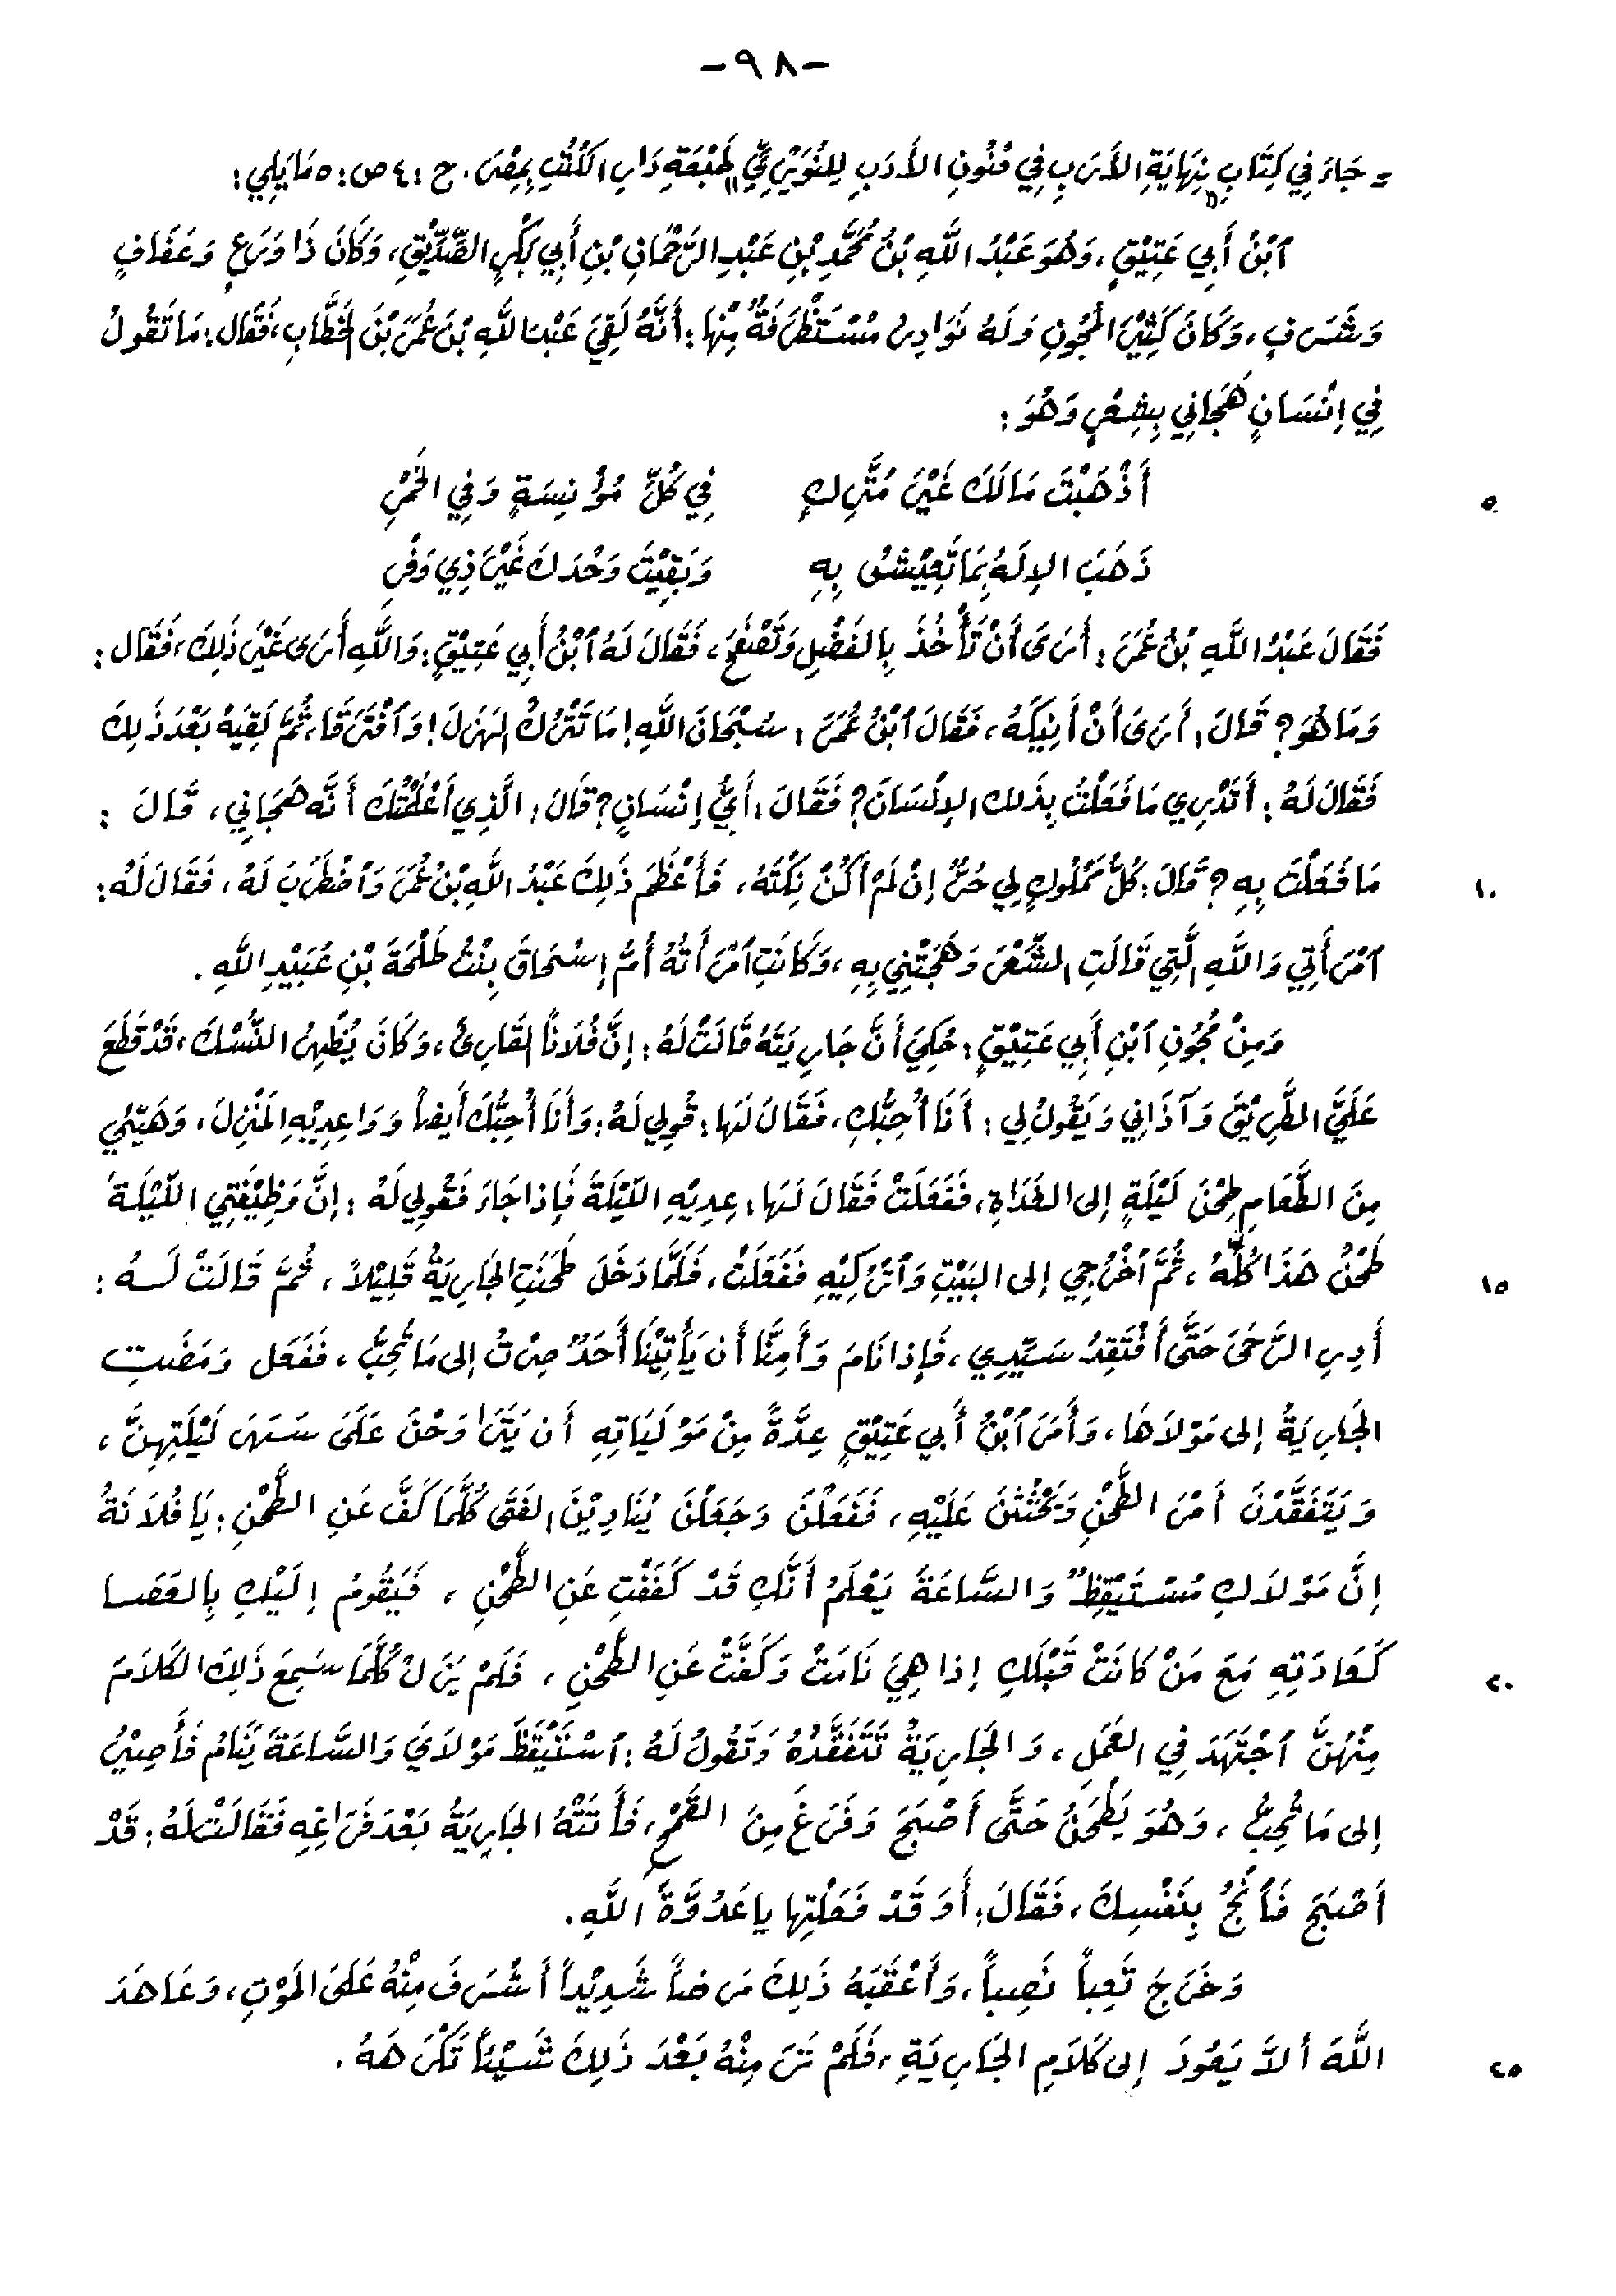 -٩٨-
= جَاءَ فِي كِتَابِ "نِهَايَةِ الأَرَبِ فِي فُنُونِ الأَدَبِ لِلنُّوَيْرِيِّ" طَبْعَةِ دَارِ الكُتُبِ بِمِصْرَ. ج: ٤ ص: ٥ مَا يَلِي:
ٱبْنُ أَبِي عَتِيْقٍ، وَهُوَ عَبْدُ اللَّهِ بْنُ مُحَمَّدِ بْنِ عَبْدِ الرَّحْمَانِ بْنِ أَبِي بَكْرٍ الصِّدِّيْقِ، وَكَانَ ذَا وَرَعٍ وَعَفَافٍ
وَشَرَفٍ، وَكَانَ كَثِيْرَ المُجُونِ وَلَهُ نَوَادِرُ مُسْتَظْرَفَةٌ مِنْهَا: أَنَّهُ لَقِيَ عَبْدَ اللَّهِ بْنَ عُمَرَ بْنَ الخَطَّابِ، فَقَالَ: مَا تَقُولُ
فِي إِنْسَانٍ هَجَانِي بِشِعْرٍ وَهُوَ:
أَذْهَبْتَ مَالَكَ غَيْرَ مُتَّرِكٍ فِي كُلِّ مُؤْنِسَةٍ وَفِي الخَمْرِ
٥
ذَهَبَ الإِلَهُ بِمَا تَعِيْشُ بِهِ وَبَقِيْتَ وَحْدَكَ غَيْرَ ذِي وَفْرِ
فَقَالَ عَبْدُ اللَّهِ بْنُ عُمَرَ: أَرَى أَنْ تَأْخُذَ بِالفَضْلِ وَتَصْفَحَ، فَقَالَ لَهُ ٱبْنُ أَبِي عَتِيْقٍ: وَاللَّهِ أَرَى غَيْرَ ذَلِكَ، فَقَالَ:
وَمَا هُوَ؟ قَالَ: أَرَى أَنْ أَنِيكَهُ، فَقَالَ ٱبْنُ عُمَرَ: سُبْحَانَ اللَّهِ! مَا تَتْرُكُ الهَزْلَ! وَٱفْتَرَقَا، ثُمَّ لَقِيَهُ بَعْدَ ذَلِكَ
فَقَالَ لَهُ: أَتَدْرِي مَا فَعَلْتُ بِذَلِكَ الإِنْسَانَ؟ فَقَالَ: أَيُّ إِنْسَانٍ؟ قَالَ: الَّذِي أَعْلَمْتُكَ أَنَّه هَجَانِي، قَالَ:
مَا فَعَلْتَ بِهِ؟ قَالَ: كُلُّ مَمْلُوكٍ لِي حُرٌّ إِنْ لَمْ أَكُنْ نِكْتَهُ، فَأَعْظَمَ ذَلِكَ عَبْدُ اللَّهِ بْنُ عُمَرَ وَٱضْطَرَبَ لَهُ، فَقَالَ لَهُ:
١٠
ٱمْرَأَتِي وَاللَّهِ الَّتِي قَالَتِ الشِّعْرَ وَهَجَتْنِي بِهِ، وَكَانَتِ ٱمْرَأَتُهُ أُمُّ إِسْحَاقَ بِنْتُ طَلْحَةَ بْنِ عُبَيْدِ اللَّهِ.
وَمِنْ مُجُونِ ٱبْنِ أَبِي عَتِيْقٍ: حُكِيَ أَنَّ جَارِيَتَهُ قَالَتْ لَهُ: إِنَّ فُلَاناً القَارِئَ، وَكَانَ يُظْهِرُ النُّسْكَ، قَدْ قَطَعَ
عَلَيَّ الطَّرِيْقَ وَآذَانِي وَيَقُولُ لِي: أَنَا أُحِبُّكِ، فَقَالَ لَهَا: قُولِي لَهُ: وَأَنَا أُحِبُّكَ أَيضاً وَوَاعِدِيْهِ المَنْزِلَ، وَهَيِّئِي
مِنَ الطَّعَامِ طِحْنَ لَيْلَةٍ إِلى الغَدَاةِ، فَفَعَلَتْ فَقَالَ لَهَا: عِدِيْهِ اللَّيْلَةَ فَإِذا جَاءَ فَقُولِي لَهُ: إِنَّ وَظِيْفَتِي اللَّيْلَةَ
طَحْنُ هَذَا كُلِّهُ، ثُمَّ ٱخْرُجِي إِلى البَيْتِ وَٱتْرُكِيْهِ فَفَعَلَتْ، فَلَمَّا دَخَلَ طَحَنَتِ الجَارِيَةُ قَلِيْلاً، ثُمَّ قَالَتْ لَهُ:
١٥
أَدِرِ الرَّحَى حَتَّى أَفْتَقِدَ سَيِّدِي، فَإِذا نَامَ وَأَمِنَّا أَن يَأْتِيْنَا أَحَدٌ صِرْتُ إِلى مَا تُحِبُّ، فَفَعَل وَمَضَتِ
الجَارِيَةُ إِلى مَوْلاَهَا، وَأَمَرَ ٱبْنُ أَبِي عَتِيْقٍ عِدَّةً مِنْ مَوْلَيَاتِهِ أَن يَتَرَاوَحْنَ عَلَىَ سَهَرِ لَيْلَتِهِنَّ،
وَيَتَفَقَّدْنَ أَمْرَ الطَّحْنِ وَيَحْثُثْنَ عَلَيْهِ، فَفَعَلْنَ وَجَعَلْنَ يُنَادِيْنَ الفَتَى كُلَّمَا كَفَّ عَنِ الطَّحْنِ: يَا فُلاَنَةُ
إِنَّ مَوْلاَكِ مُسْتَيْقِظٌ وَالسَّاعَةَ يَعْلَمُ أَنَّكِ قَدْ كَفَفْتِ عَنِ الطَّحْنِ، فَيَقُومُ إِلَيْكِ بِالعَصَا
كَعَادَتِهِ مَعَ مَنْ كَانَتْ قَبْلَكِ إِذا هِيَ نَامَتْ وَكَفَّتْ عَنِ الطَّحْنِ، فَلَمْ يَزَلْ كُلَّمَا سَمِعَ ذَلِكَ الكَلاَمَ
٢٠
مِنْهُنَّ ٱجْتَهَدَ فِي العَمَلِ، وَالجَارِيَةُ تَتَفَقَّدُهُ وَتَقُولُ لَهُ: ٱسْتَيْقَظَ مَوْلاَيَ وَالسَّاعَةَ يَنَامُ فَأَصِيْرُ
إِلى مَا تُحِبُّ، وَهُوَ يَطْحَنُ حَتَّى أَصْبَحَ وَفَرَغَ مِنَ القَمْحِ، فَأَتَتْهُ الجَارِيَةُ بَعْدَ فَرَاغِهِ فَقَالَتْ لَهُ: قَدْ
أَصْبَحَ فَٱنْجُ بِنَفْسِكَ، فَقَالَ: أَوَقَدْ فَعَلْتِها يا عَدُوَّةَ اللَّهِ.
وَخَرَجَ تَعِباً نَصِباً، وَأَعْقَبَهُ ذَلِكَ مَرَضاً شَدِيْداً أَشْرَفَ مِنْهُ عَلَىَ المَوْتِ، وَعَاهَدَ
اللَّهَ ألاَّ يَعُودَ إِلى كَلاَمِ الجَارِيَةِ، فَلَمْ تَرَ مِنْهُ بَعْدَ ذَلِكَ شَيْئاً تَكْرَهَهُ.
٢٥